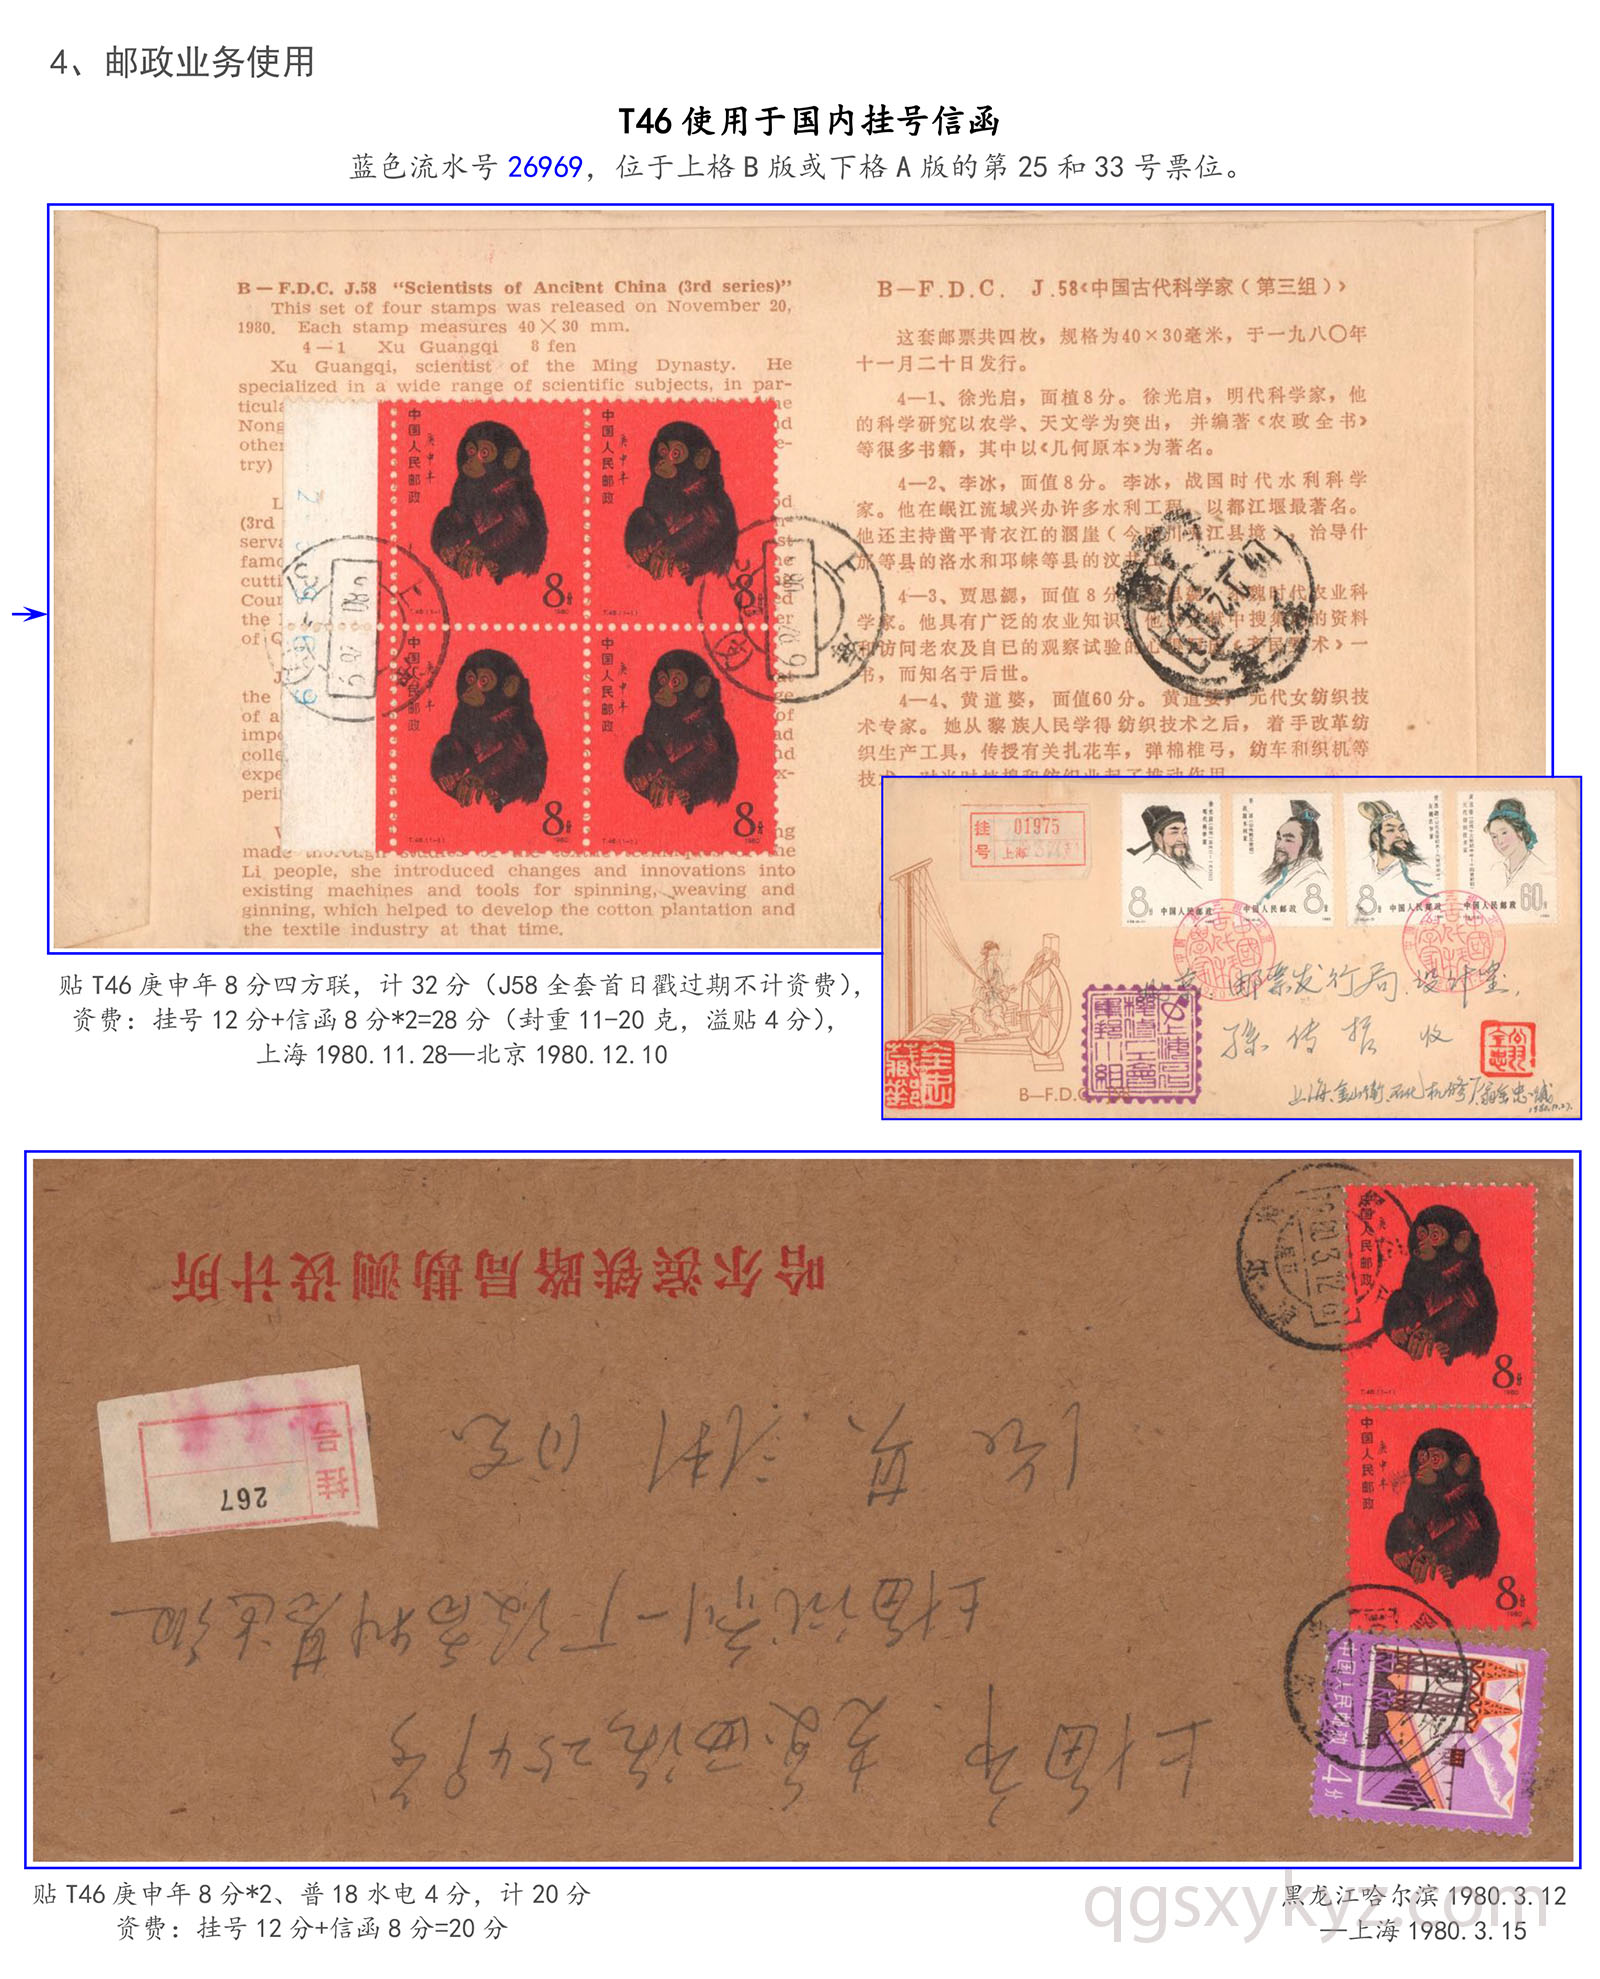 4、邮政业务使用
T46 使用于国内挂号信函
蓝色流水号 26969，位于上格 B 版或下格 A 版的第 25 和 33 号票位。
B — F.D.C. J.58 “Scientists of Ancient China (3rd series)”
This set of four stamps was released on November 20,
1980. Each stamp measures 40×30 mm.
4—1 Xu Guangqi 8 fen
Xu Guangqi, scientist of the Ming Dynasty. He
specialized in a wide range of scientific subjects, in par-
ticula
Nong
other
try)
(3rd
serva
famo
cutti
Coun
the
of Q
the
of a
impo
colle
expe
perin
made thorough studies of the textile techniques of the
Li people, she introduced changes and innovations into
existing machines and tools for spinning, weaving and
ginning, which helped to develop the cotton plantation and
the textile industry at that time.
B—F.D.C. J.58《中国古代科学家（第三组）》
这套邮票共四枚，规格为40×30毫米，于一九八〇年
十一月二十日发行。
4—1、徐光启，面植8分。徐光启，明代科学家，他
的科学研究以农学、天文学为突出，并编著《农政全书》
等很多书籍，其中以《几何原本》为著名。
4—2、李冰，面值8分。李冰，战国时代水利科学
家。他在岷江流域兴办许多水利工程，以都江堰最著名。
他还主持凿平青衣江的溷崖（今四川夹江县境），治导什
邡等县的洛水和邛崃等县的汶井江
4—3、贾思勰，面值8分 贾思勰，北魏时代农业科
学家。他具有广泛的农业知识，他从文献中搜集的资料
和访问老农及自已的观察试验的心得写成《齐民要术》一
书，而知名于后世。
4—4、黄道婆，面值60分。黄道婆，元代女纺织技
术专家。她从黎族人民学得纺织技术之后，着手改革纺
织生产工具，传授有关扎花车，弹棉椎弓，纺车和织机等
中国人民邮政
庚申年
8分
T.46.(1-1)
1980
中国人民邮政
庚申年
8分
T.46.(1-1)
1980
中国人民邮政
庚申年
8分
T.46.(1-1)
1980
中国人民邮政
庚申年
8分
T.46.(1-1)
1980
上海
上海
挂号
01975
上海
8分 中国人民邮政
中国人民邮政 8分
8分 中国人民邮政
中国人民邮政 60分
北京 邮票发行局 设计室
孙传哲 收
上海金山卫石化机修厂翁金忠缄
B—F.D.C.
贴 T46 庚申年 8 分四方联，计 32 分（J58 全套首日戳过期不计资费），
资费：挂号 12 分+信函 8 分*2=28 分（封重 11-20 克，溢贴 4 分），
上海 1980.11.28—北京 1980.12.10
哈尔滨铁路局勘测设计所
挂号
267
中国人民邮政
庚申年
8分
T.46.(1-1)
1980
中国人民邮政
庚申年
8分
1980
中国人民邮政
4分
贴 T46 庚申年 8 分*2、普 18 水电 4 分，计 20 分
资费：挂号 12 分+信函 8 分=20 分
黑龙江哈尔滨 1980.3.12
—上海 1980.3.15
qgsxykyz.com